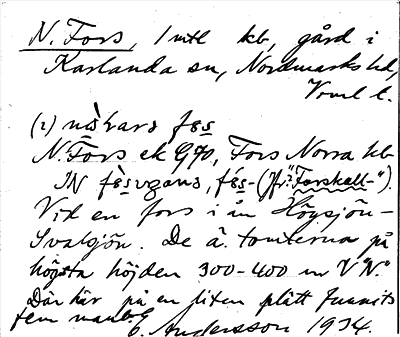 N. Fors, 1 mtl kb, gård i
Karlanda sn, Nordmarks hd,
Vrml l.
(i) nòs̱ʋarɜ fɵs̱
N. Fors ek G 70, Fors Norra kb
IN fès̱ʋgɑnɜ, fés̱- (Jfr "Forskall-").
Vid en fors i ån Högsjön-
Svalsjön. De ä. tomterna på
högsta höjden 300-400 m V "N."
Där här på en liten plätt funnits
fem
E. Andersson 1934.